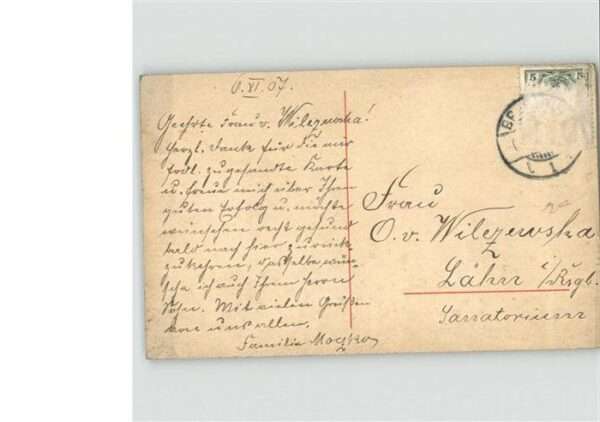 6.VI.07.
Geehrte Frau v. Wilczewska!
Herzl. Dank für die mir
frdl. zugesandte Karte
u. freue mich über Ihren
guten Erfolg u. möchte
wünschen recht gesund
bald nach hier zurück
zukehren, dasselbe wün-
sche ich auch Ihrem Herrn
Sohn. Mit vielen Grüßen
von uns allen.
Familie
5 5
Frau
O. v. Wilczewska
Lähn i/Rsgb.
Sanatorium